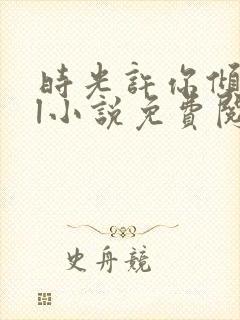 時光許你傾
l小說免費閱
史舟競